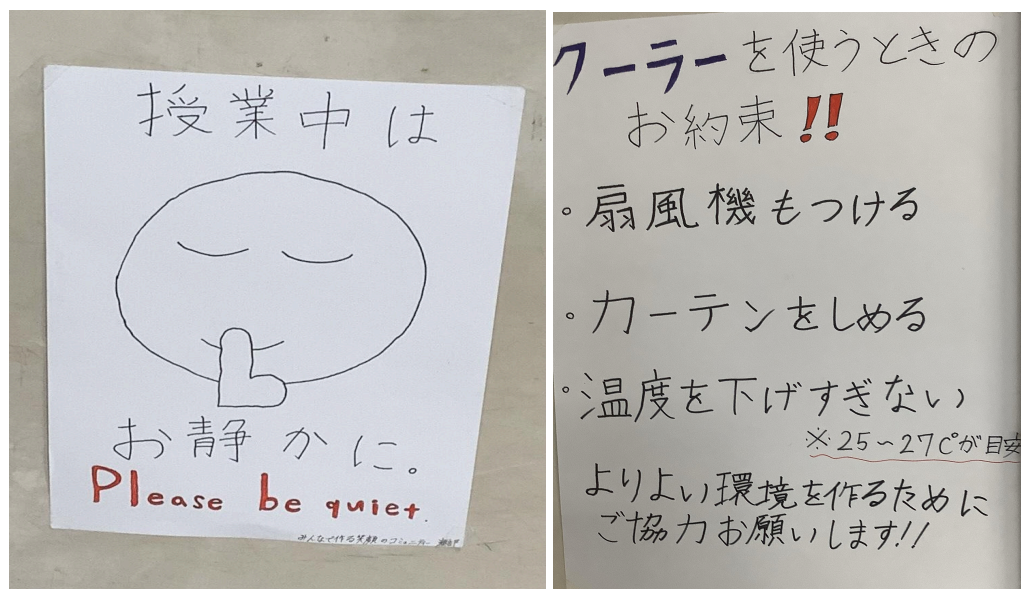 授業中は
お静かに。
Please be quiet.
みんなで作る笑顔のコミュニティー
クーラーを使うときの
お約束!!
。扇風機もつける
。カーテンをしめる
。温度を下げすぎない
※25~27℃が目安
よりよい環境を作るために
ご協力お願いします!!